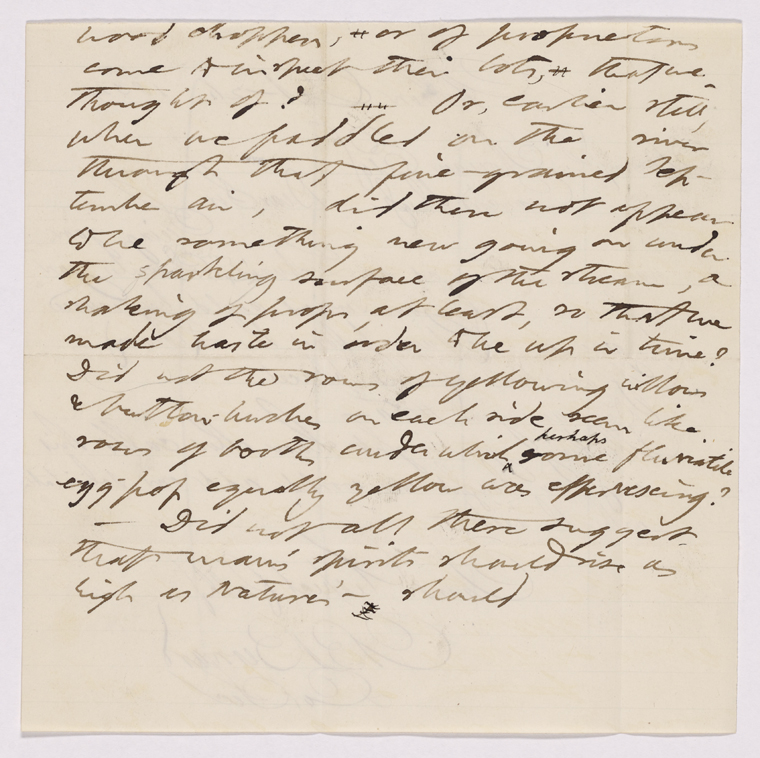 wood choppers, or of proprietors
come to inspect their lots, that we
thought of? Or, earlier still,
when we paddled on the river
through that fine-grained Sep-
tember air, did there not appear
to be something new going on under
the sparkling surface of the stream, a
shaking of props, at least, so that we
made haste in order to be up in time?
Did not the rows of yellowing willows
& button-bushes on each side seem like
rows of booths under which perhaps some fluviatile
egg-pop equally yellow was effervescing?
— Did not all these suggest
that man's spirits should rise as
high as Nature's — should